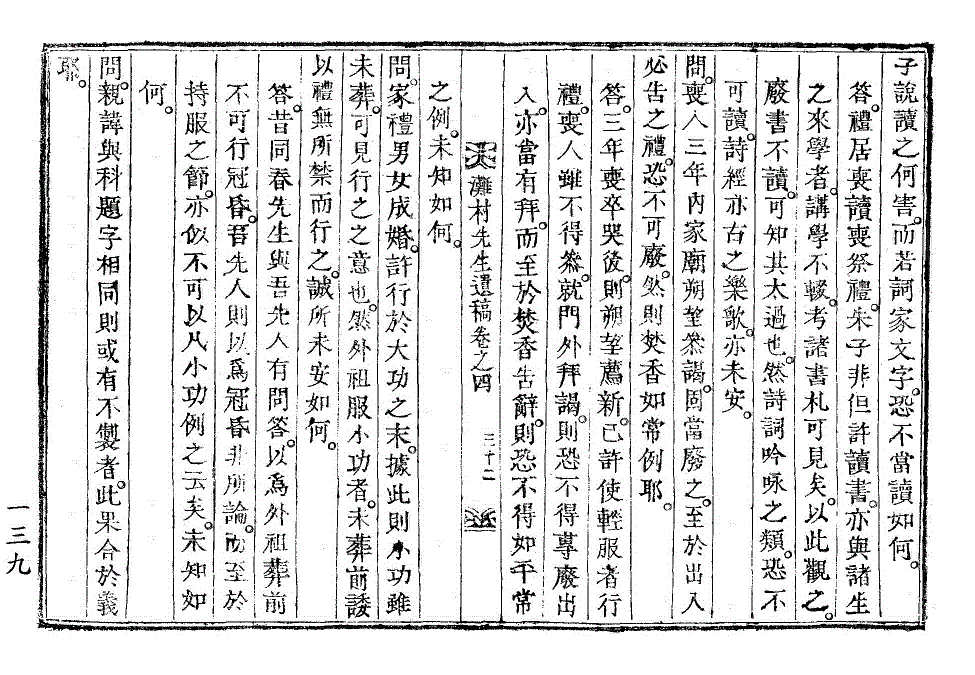 子說讀之何害。而若詞家文字。恐不當讀如何。
答。禮居喪讀喪祭禮。朱子非但許讀書。亦與諸生
之來學者。講學不輟。考諸書札可見矣。以此觀之。
廢書不讀。可知其太過也。然詩詞吟咏之類。恐不
可讀。詩經亦古之樂歌。亦未安。
問。喪人三年內家廟朔望叅謁。固當廢之。至於出入
必告之禮。恐不可廢。然則焚香如常例耶。
答。三年喪卒哭後。則朔望薦新。已許使輕服者行
禮。喪人雖不得叅。就門外拜謁。則恐不得專廢出
入。亦當有拜。而至於焚香告辭。則恐不得如平常
灘村先生遺稿卷之四 三十二
之例。未知如何。
問。家禮男女成婚。許行於大功之末。據此則小功雖
未葬。可見行之之意也。然外祖服小功者。未葬前諉
以禮無所禁而行之。誠所未安如何。
答。昔同春先生與吾先人有問答。以爲外祖葬前
不可行冠昏。吾先人則以爲冠昏非所論。而至於
持服之節。亦似不可以凡小功例之云矣。未知如
何。
問。親諱與科題字相同則或有不製者。此果合於義
耶。
一三九